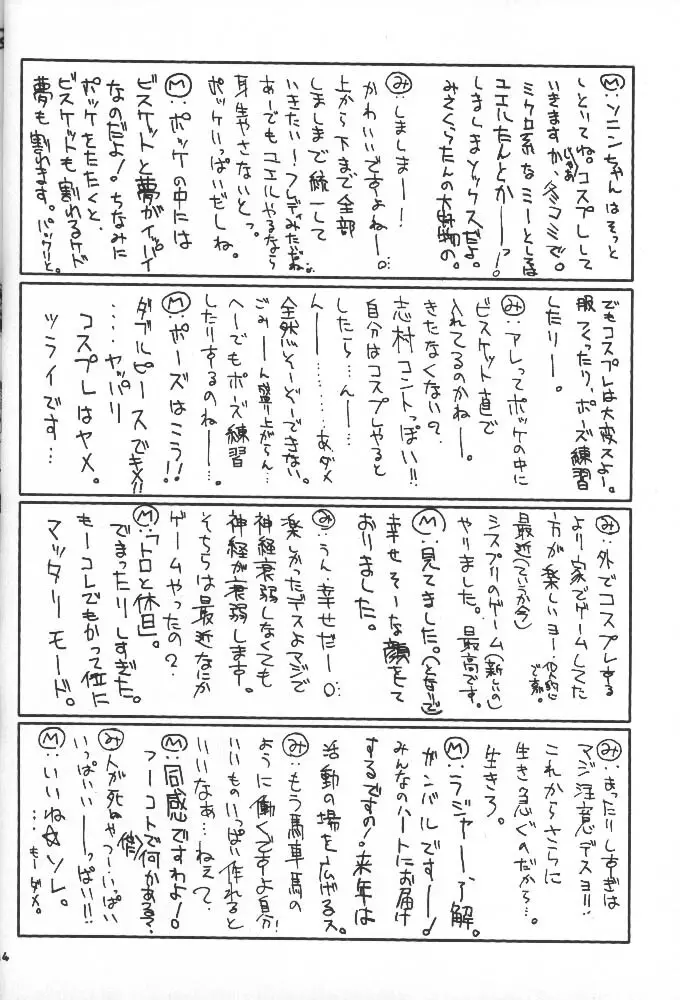 Ⓜ:ソニンちゃんはそっと
しといてね。コスプレして
じゃあ
いきますか、冬コミで。
ミクロ系なミーとしては
ユエルたんとかーっ!
しましまソックスだよ。
みさくらたんの大好物の。
み:しましまー!
かわいいですよねー。
上から下まで全部
しましまで統一して
いきたいー!フレディみたいだね。
あーでもユエルやるなら
身生やさないとっ。
ポッケいっぱいだしね。
Ⓜ:ポッケの中には
ビスケットと夢がイッパイ
なのだよ!ちなみに
ポッケをたたくと、
ビスケットも割れるケド
夢も割れます。パックリと。
でもコスプレは大変スよー。
服つくったり、ポーズ練習
したりー。
み:アレってポッケの中に
ビスケット直で
入れてるのかねー。
きたなくないの?
志村コントっぽい!!
自分はコスプレやると
したら…んー…
んー………あ、ダメ
全然そーぞーできない。
ごみーん盛り上がらん…
へーでもポーズ練習
したりするのねー…。
Ⓜ:ポーズはこう!!
ダブルピースでキメ!!
……ヤッパリ
コスプレはヤメ。
ツライです…
み:外でコスプレする
より家でゲームしてた
方が楽しいヨー…個人的に
ですが。
最近(ていうか今)
シスプリのゲーム(新しいの)
やりました。最高です。
Ⓜ:見てました。(となりで)
幸せそーな顔をして
おりました。
み:うん…幸せだー。
楽しかったデスよマジで
神経衰弱しなくても
神経が衰弱します。
そちらは最近なにか
ゲームやったの?
Ⓜ:「トロと休日」。
でまったりしすぎた。
もーコレでもかって位に
マッタリモード。
み:まったりしすぎは
マジ注意デスョ!!
これからさらに
生き急ぐのだから…。
生きろ。
Ⓜ:ラジャー、了解。
ガンバルですー!
みんなのハートにお届け
するですの!来年は
活動の場を広げるス。
み:もう馬車馬の
ように働くですよ自分!
いいものいっぱい作れると
いいなぁ…ねぇ?
Ⓜ:同感ですわよ!
つーコトで何かある?
(他に)
み:人が死ぬやつーいっぱい
いっぱいいーっぱい!!
Ⓜ:いいね☆ソレ。
…もーダメ。
4